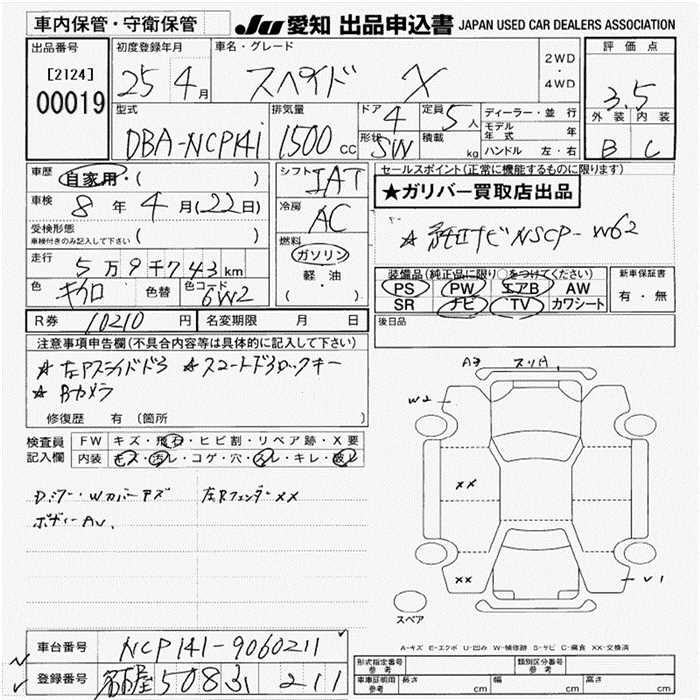 車内保管・守衛保管
JU 愛知 出品申込書 JAPAN USED CAR DEALERS ASSOCIATION
出品番号
[2124]
00019
初度登録年月
25 4月
車名・グレード
スペイド X
2WD
・
4WD
評価点
3.5
外装 内装
B C
型式
DBA-NCP141
排気量
1500 cc
ドア
4
形状
SW
定員
5人
積載
kg
ディーラー・並行
モデル年式 年
ハンドル 左・右
車歴
自家用・( )
車検
8年4月(22日)
受検形態
車検付きのみ記入して下さい ( )
走行
5万9千743km
色
色替
色コード
6W2
シフト
IAT
冷房
AC
燃料
ガソリン
軽・油
( )
セールスポイント(正常に機能するものに限ります)
★ガリバー買取店出品
☆純正ナビNSCP-W62
装備品(純正品に限り〇をつけてください)
PS PW エアB AW
SR ナビ TV カワシート
新車保証書
有・無
後日品
R券 10210円
名変期限 月 日
注意事項申告欄(不具合内容等は具体的に記入して下さい)
☆Bカメラ
修復歴 有 (箇所 )
検査員
記入欄
FW キズ・飛石・ヒビ割・リペア跡・X要
内装 キズ・汚レ・コゲ・穴・スレ・キレ・破レ
左Rフェンダーxx
A3
W2
xx
xx
V1
スペア
A-キズ E-エクボ U-凹み W-補修跡 S-サビ C-腐食 XX-交換済
車台番号 NCP141-9060211
登録番号 508 211
形式指定番号
参考
類別区分番号
参考
車庫証明用
参考
長さ cm 幅 cm 高さ cm